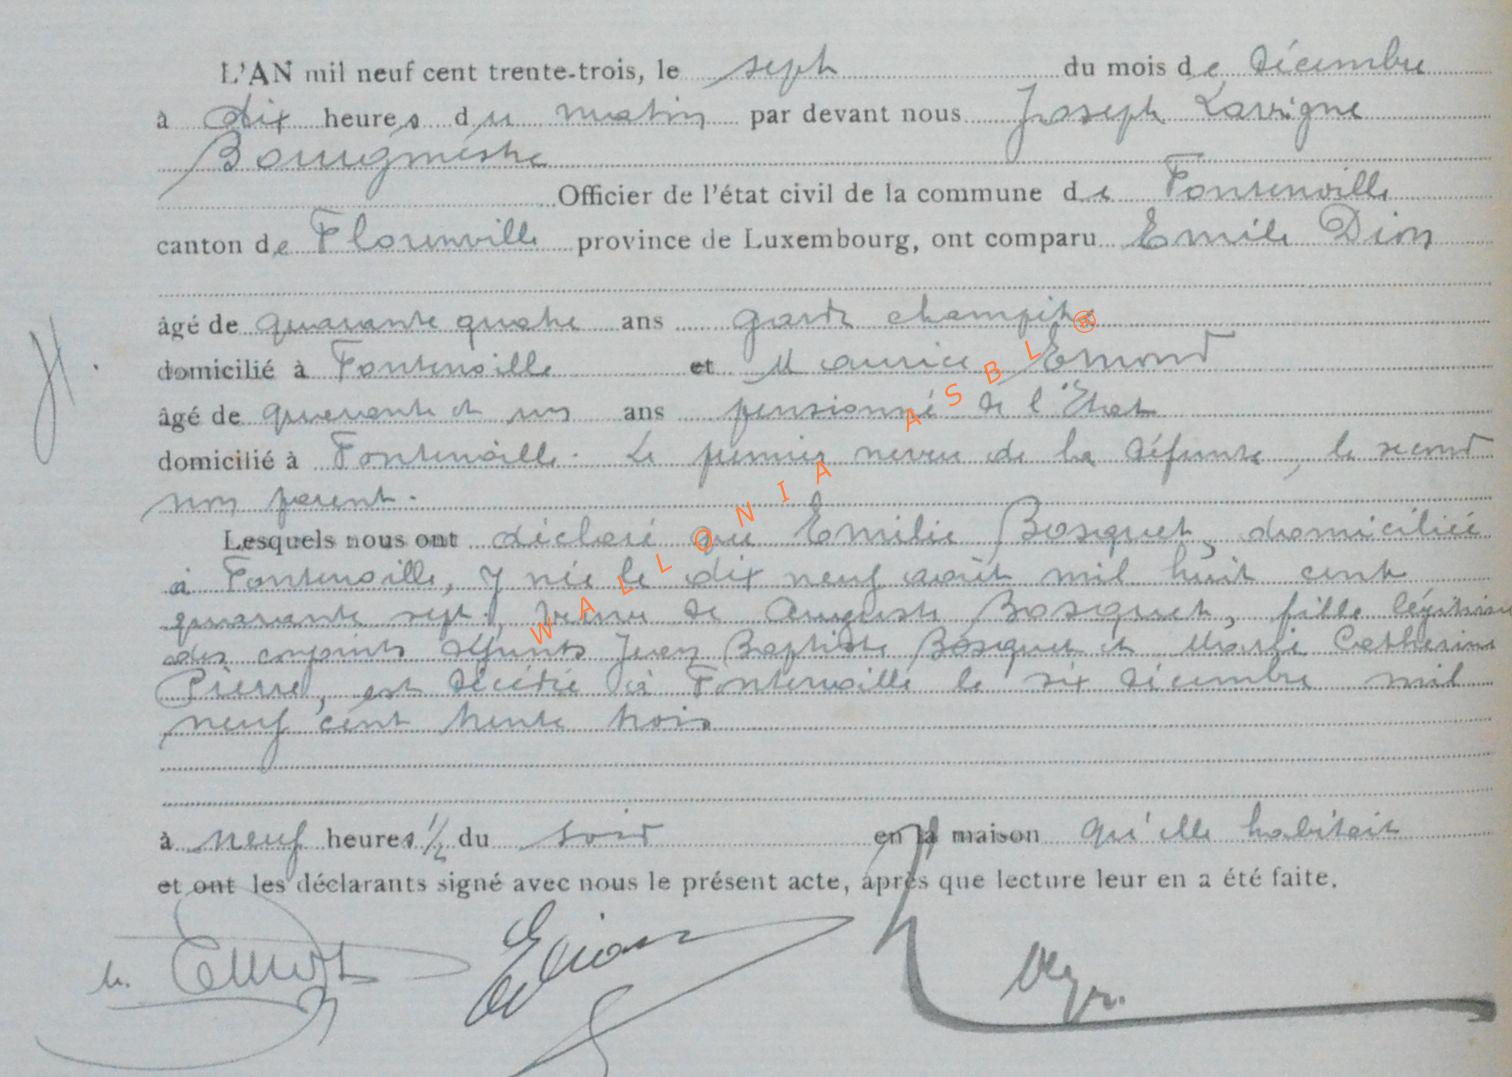 L'AN mil neuf cent trente-trois, le sept du mois de décembre
à dix heures du matin par devant nous Joseph Lavigne
Bourgmestre
Officier de l'état civil de la commune de Fontenoille
canton de Florenville province de Luxembourg, ont comparu Emile Dion
âgé de quarante quatre ans garde champêtre
domicilié à Fontenoille et Maurice Emond
âgé de quarante et un ans pensionné de l'Etat
domicilié à Fontenoille. Le premier neveu de la défunte, le second
non parent.
Lesquels nous ont déclaré que Emilie Bosquet, domiciliée
à Fontenoille, y née le dix neuf août mil huit cent
quarante sept, veuve de Auguste Bosquet, fille légitime
des conjoints défunts Jean Baptiste Bosquet et Marie Catherine
Pierre, est décédée à Fontenoille le six décembre mil
neuf cent trente trois
à neuf heures 1/2 du soir en la maison qu'elle habitait
et ont les déclarants signé avec nous le présent acte, après que lecture leur en a été faite.
M. Emond EDion
WALLONIA ASBL ®